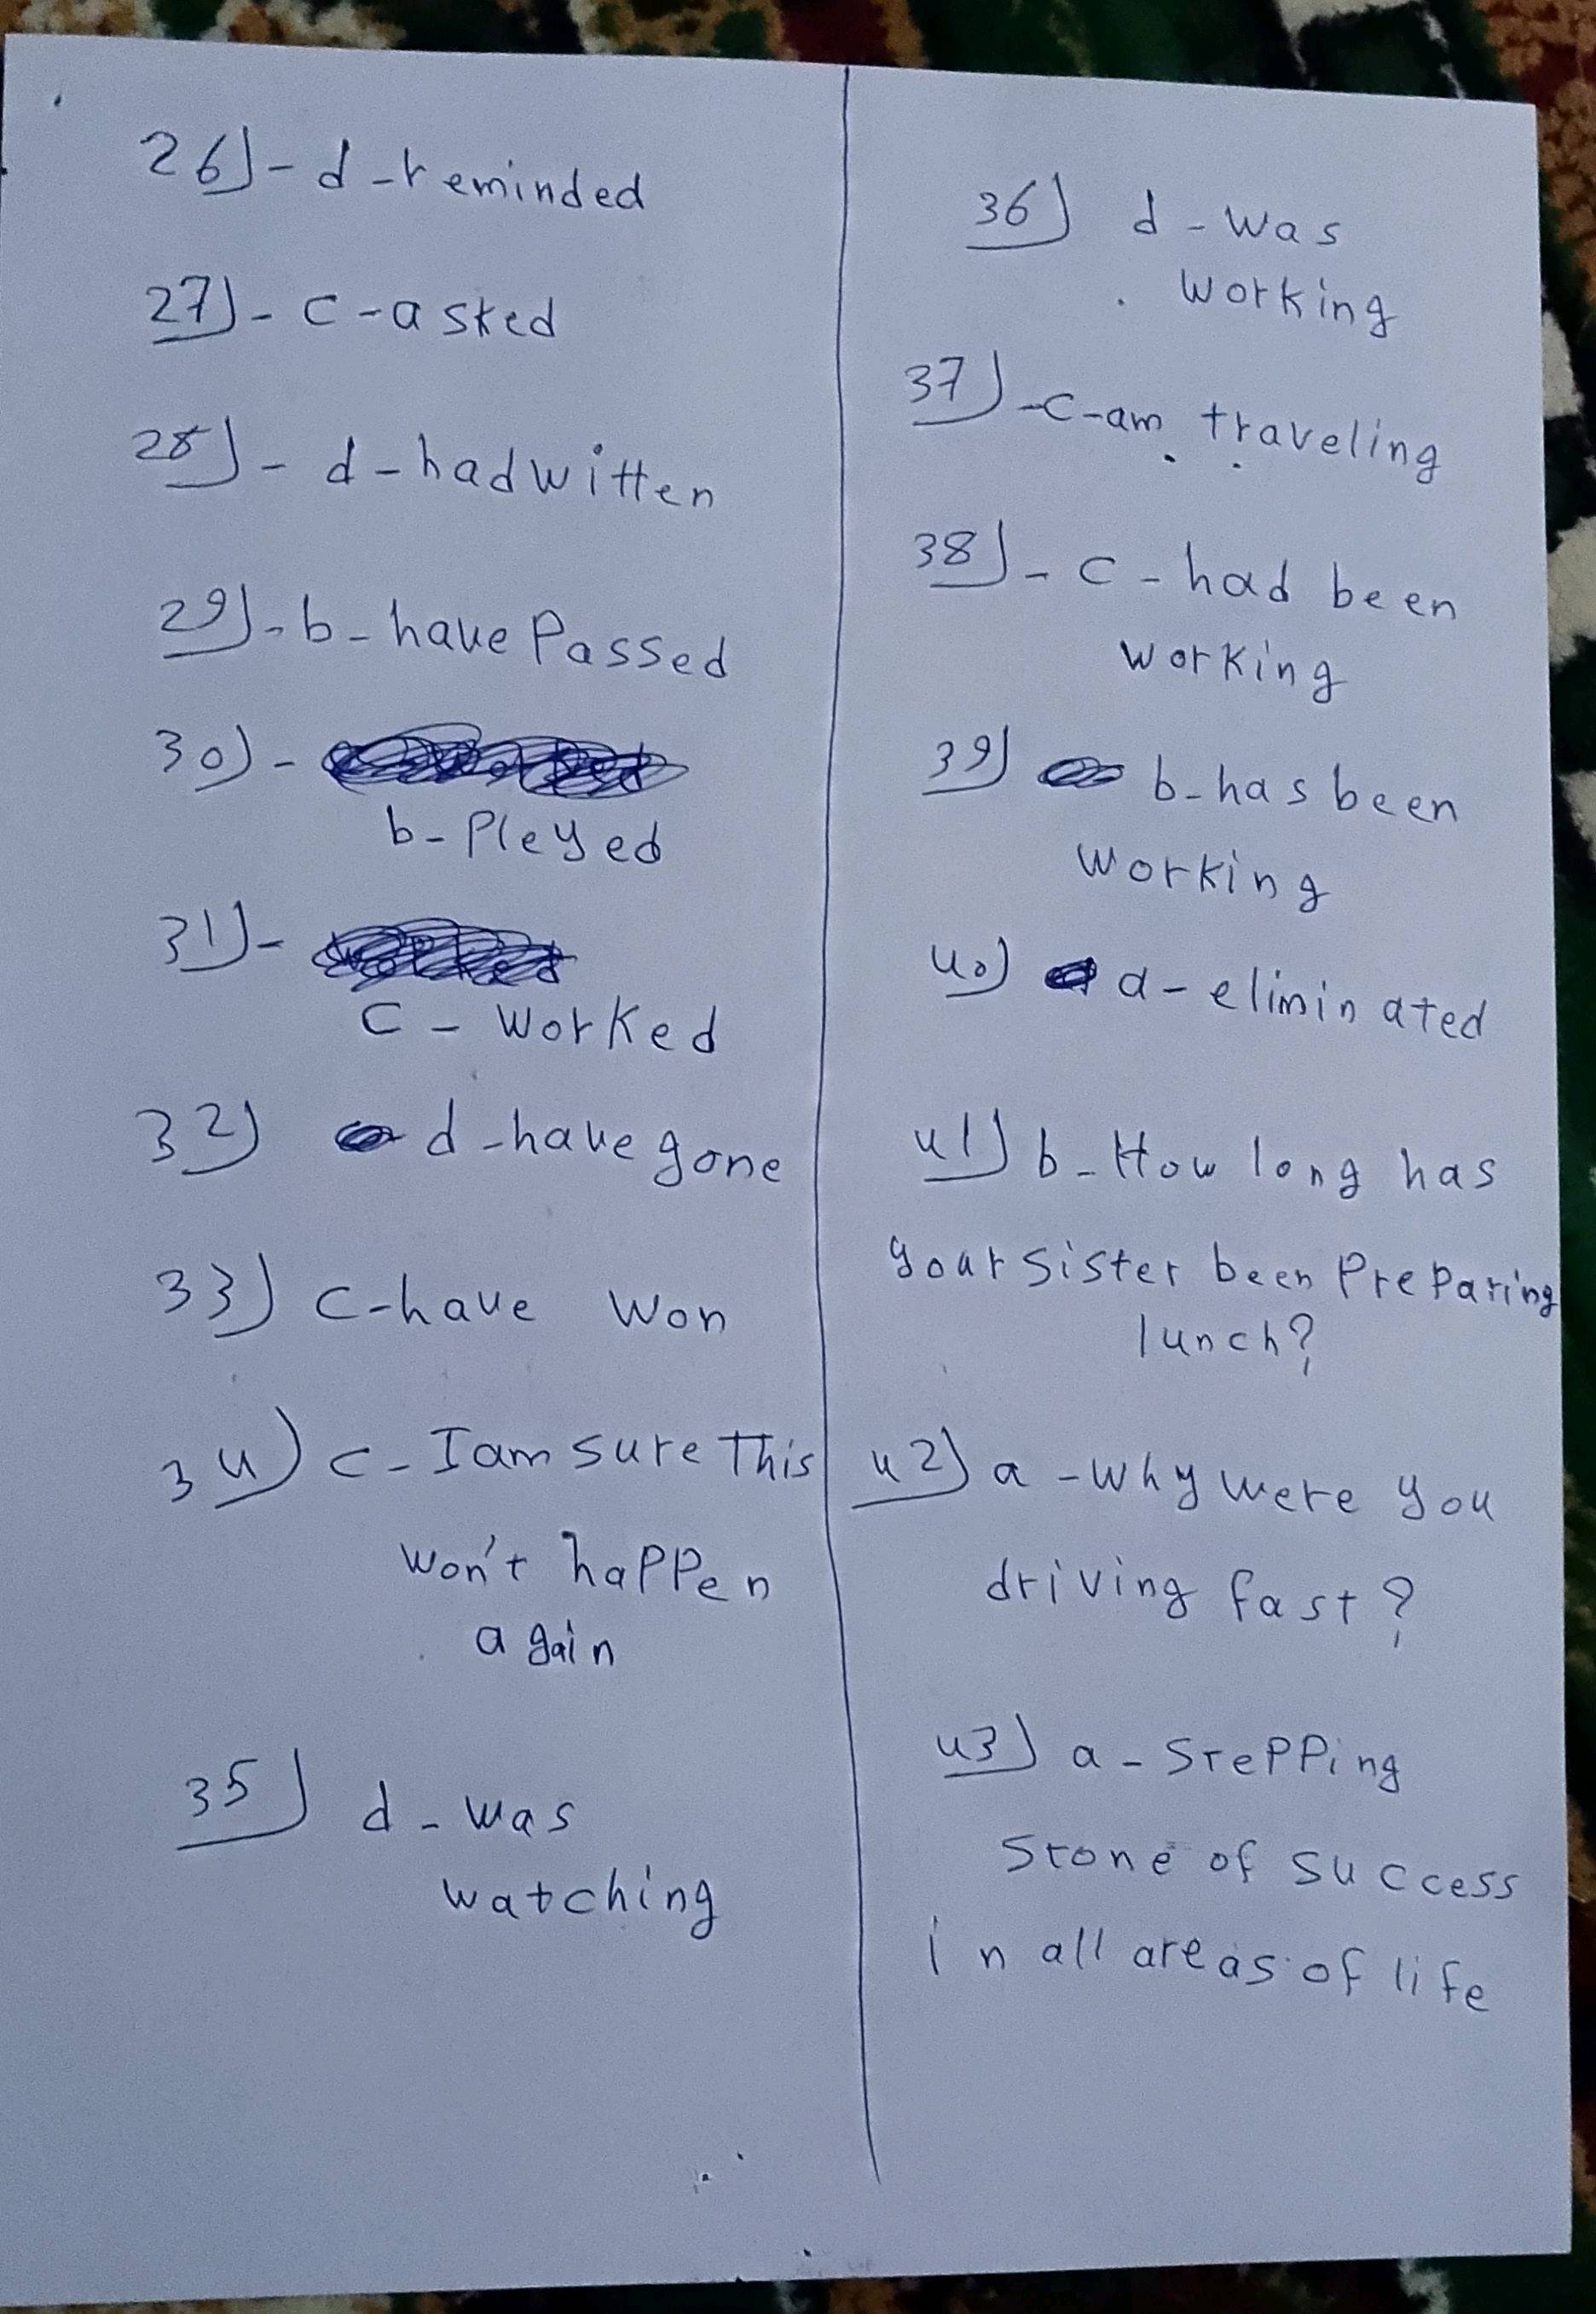 26)- d-reminded
27)- c-asked
28)- d-had witten
29)- b- have Passed
30)-
b- Pleyed
31)-
c- worked
32) d-have gone
33) c-have won
34) c- I am sure This
won't happen
again
35) d- was
watching
36) d- was
working
37)-c-am traveling
38)- c- had been
working
39) b-has been
working
40) d- eliminated
41) b- How long has
your sister been Preparing
lunch?
42) a - why were you
driving fast?
43) a- Stepping
Stone of success
in all areas of life